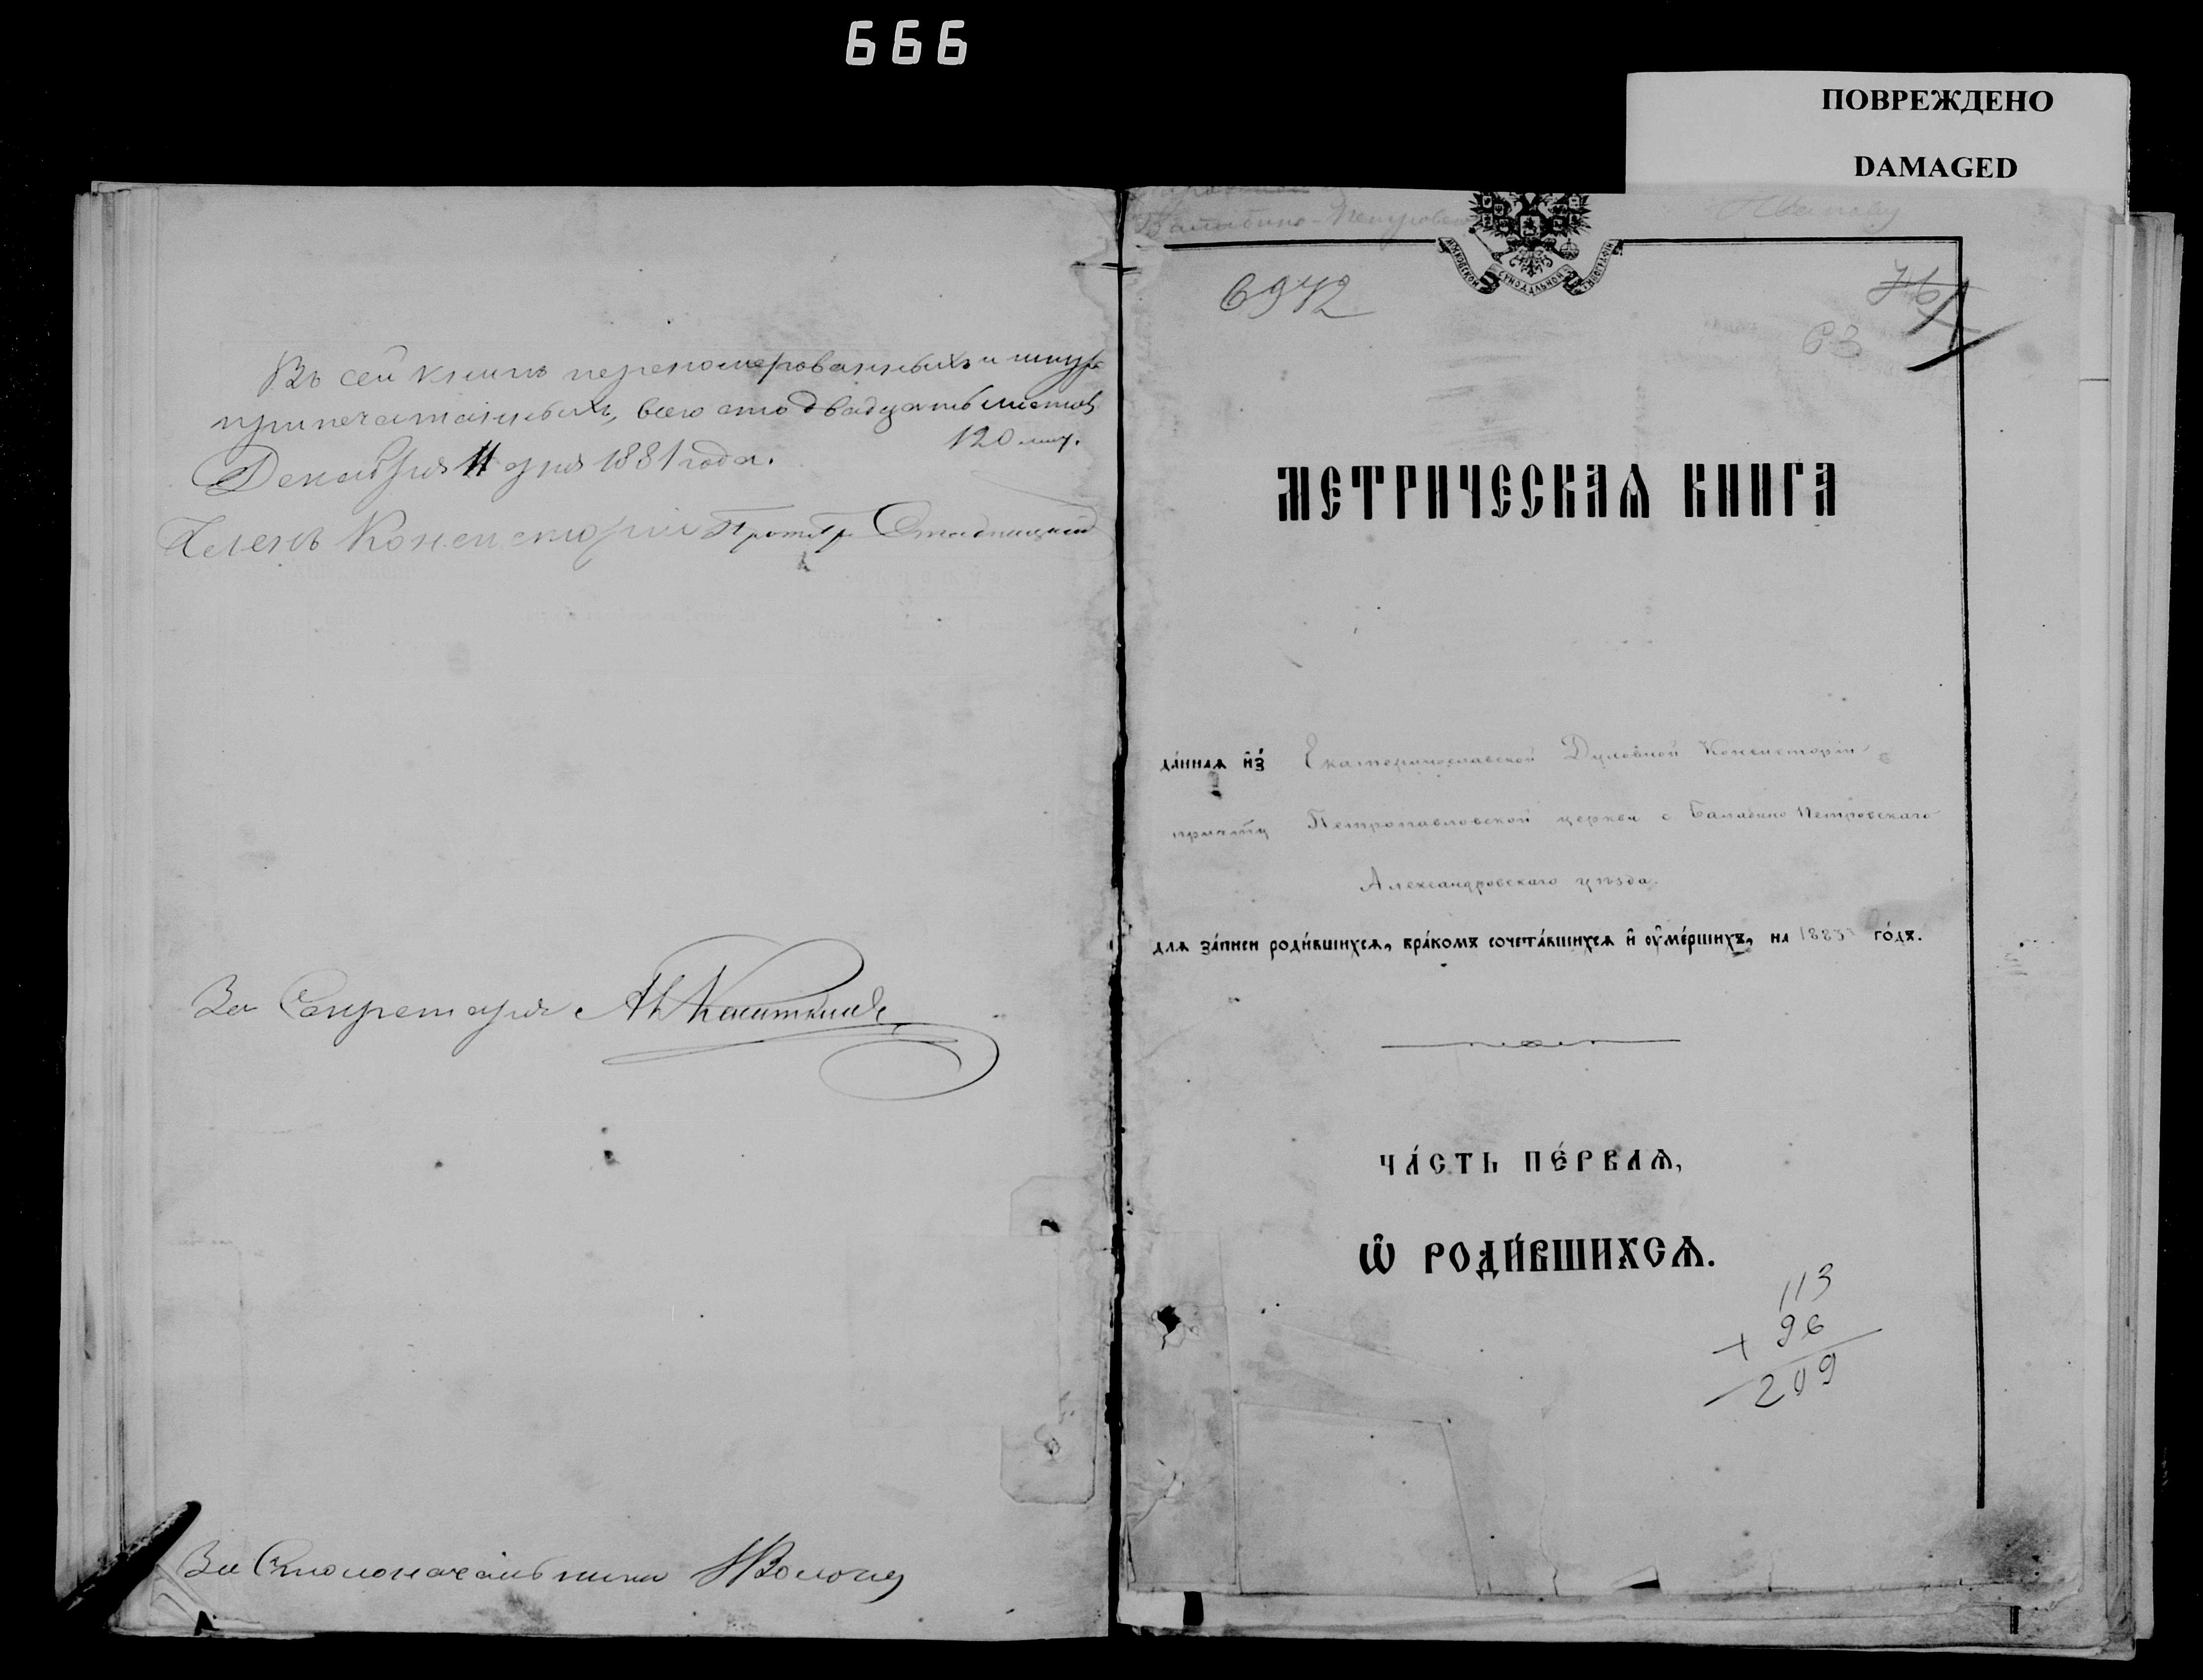 666
ПОВРЕЖДЕНО
DAMAGED
Въ сей книгѣ перенумерованныхъ и шнур
припечатанныхъ, всего сто двадцать листовъ
120 лис.
Декабря 11 дня 1881 года.
Членъ Консисторіи
За Секретаря
За Столоначальника
Балабино-Петровско
6942
63
МЕТРИЧЕСКАѦ КНИГА
да́ннаѧ и҆з̾ Екатеринославской Духовной Консисторіи
причту Петропавловской церкви с. Балабино Петровскаго
Александровскаго уѣзда.
для за́писи роди́вшихсѧ, бра́комъ сочета́вшихсѧ и҆ ᲂу҆ме́ршихъ, на 1883 го́дъ.
ЧА́СТЬ ПЕ́РВАѦ,
Ѡ҆ РОДИ́ВШИХСѦ.
113
+ 96
209